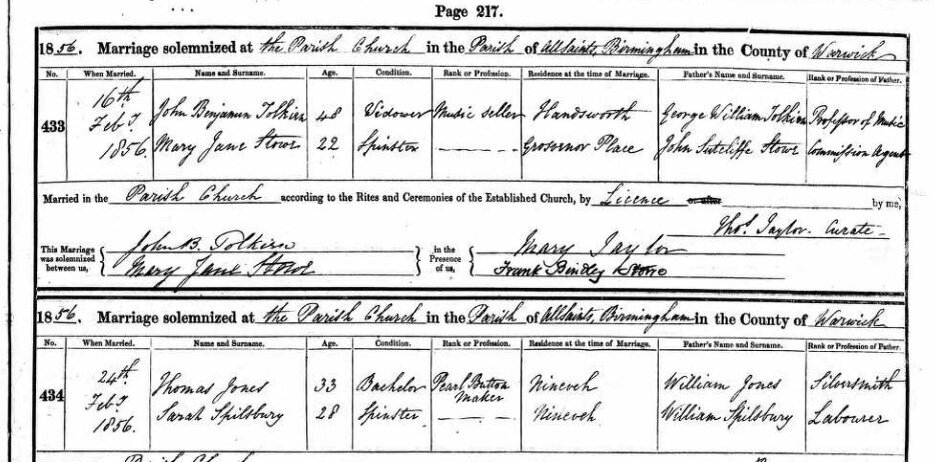 Page 217.
1856. Marriage solemnized at the Parish Church in the Parish of Allsaints, Birmingham in the County of Warwick
No. When Married. Name and Surname. Age. Condition. Rank or Profession. Residence at the time of Marriage. Father's Name and Surname. Rank or Profession of Father.
433 16th Feby 1856. John Benjamin Tolkien 48 Widower Music seller Handsworth George William Tolkien Professor of Music
Mary Jane Stowe 22 Spinster Grosvenor Place John Sutcliffe Stowe Commission Agent
Married in the Parish Church according to the Rites and Ceremonies of the Established Church, by Licence or after by me,
Thos. Taylor. Curate
This Marriage was solemnized between us, John B. Tolkien Mary Jane Stowe in the Presence of us, Mary Taylor Frank Bindley Stowe
1856. Marriage solemnized at the Parish Church in the Parish of Allsaints, Birmingham in the County of Warwick
No. When Married. Name and Surname. Age. Condition. Rank or Profession. Residence at the time of Marriage. Father's Name and Surname. Rank or Profession of Father.
434 24th Feby 1856. Thomas Jones 33 Bachelor Pearl Button Maker Nineveh William Jones Silversmith
Sarah Spilsbury 28 Spinster Nineveh William Spilsbury Labourer